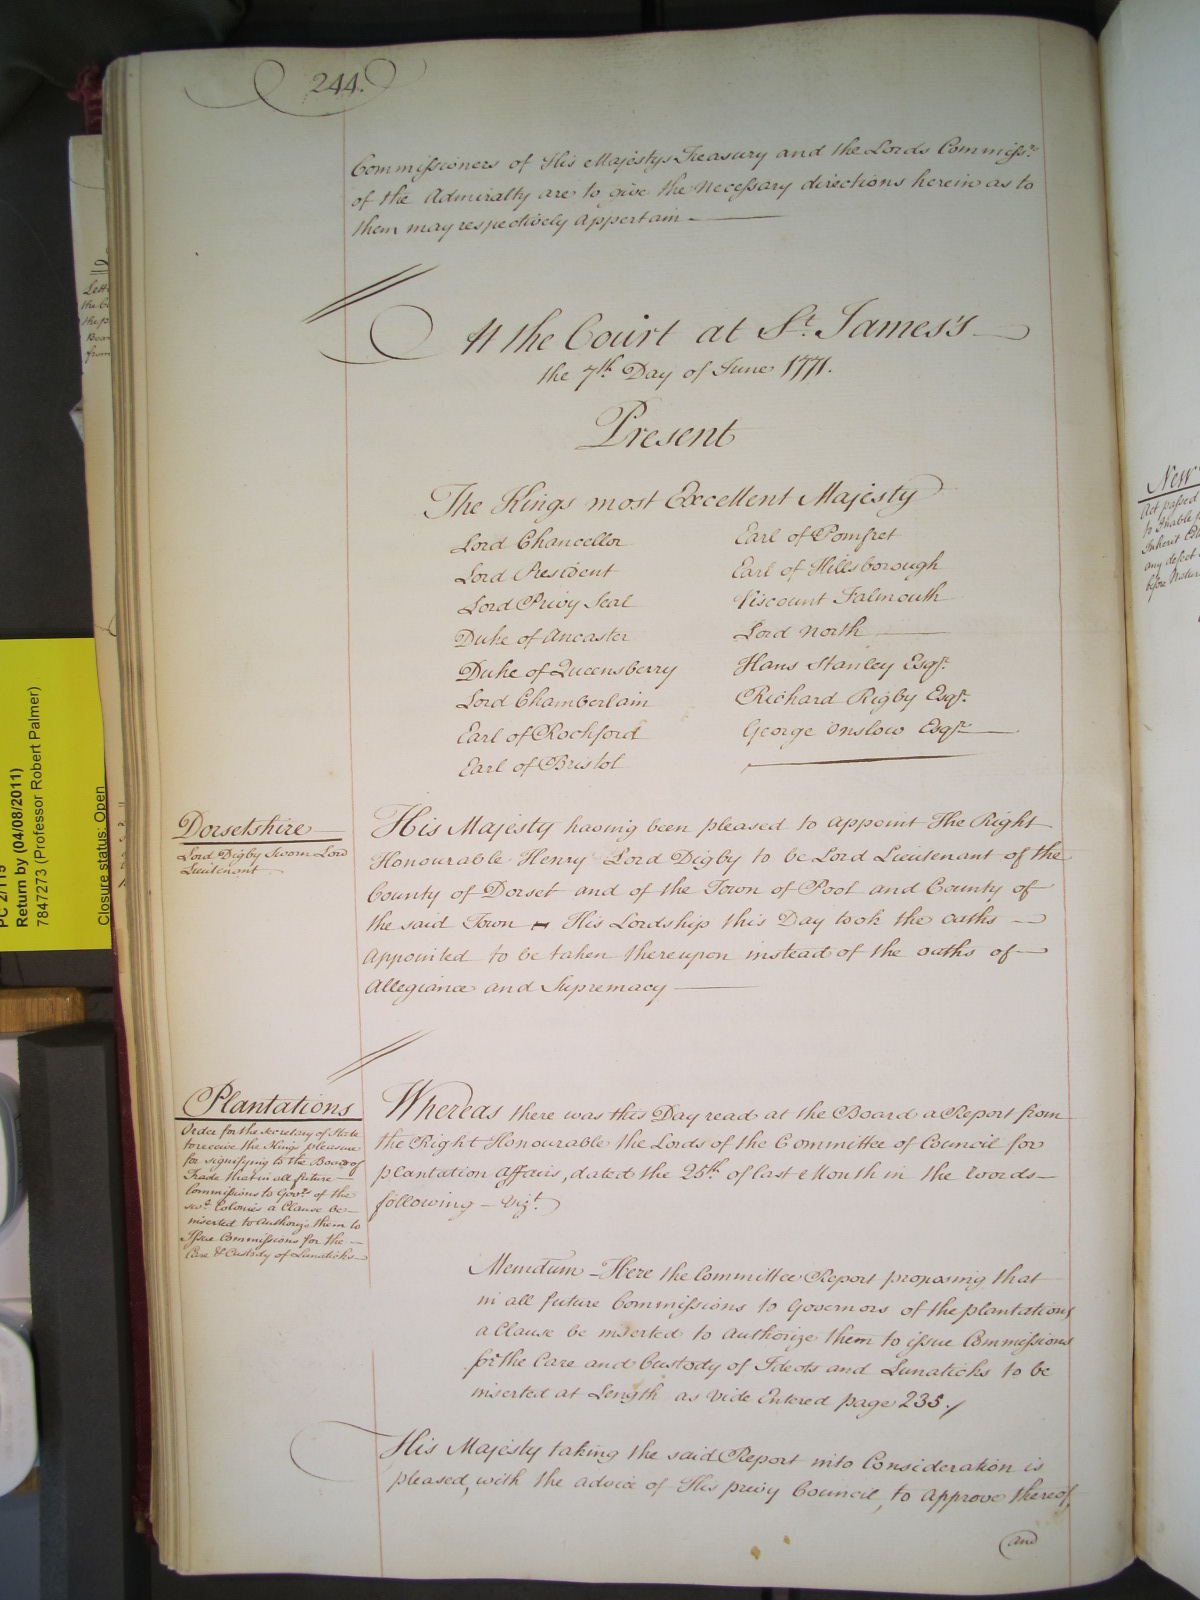 244.
Commissioners of His Majestys Treasury and the Lords Commissrs.
of the Admiralty are to give the necessary directions herein as to
them may respectively appertain
At the Court at St. James's
the 7th Day of June 1771.
Present
The Kings most Excellent Majesty
Lord Chancellor
Lord President
Lord Privy Seal
Duke of Ancaster
Duke of Queensberry
Lord Chamberlain
Earl of Rochford
Earl of Bristol
Earl of Pomfret
Earl of Hillsborough
Viscount Falmouth
Lord North
Hans Stanley Esqr.
Richard Rigby Esqr.
George Onslow Esqr.
Dorsetshire
Lord Digby Sworn Lord
Lieutenant
His Majesty having been pleased to appoint The Right
Honourable Henry Lord Digby to be Lord Lieutenant of the
County of Dorset and of the Town of Pool and County of
the said Town - His Lordship this Day took the oaths
appointed to be taken thereupon instead of the oaths of
Allegiance and Supremacy
Plantations
Order for the Secretary of State
to receive the Kings pleasure
for signifying to the Board of
Trade that in all future
Commissions to Govrs. of the
sevl. Colonies a Clause be
inserted to Authorize them to
Issue Commissions for the
Care & Custody of Lunaticks
Whereas there was this Day read at the Board a Report from
the Right Honourable the Lords of the Committee of Council for
plantation affairs, dated the 25th. of last Month in the words
following - Vizt.
Memdum - Here the Committee Report proposing that
in all future Commissions to Governors of the plantations
a Clause be inserted to authorize them to issue Commissions
for the Care and Custody of Ideots and Lunaticks to be
inserted at Length as vide Entered page 235.
His Majesty taking the said Report into Consideration is
pleased, with the advice of His privy Council, to approve thereof,
and
Return by (04/08/2011)
7847273 (Professor Robert Palmer)
Closure status: Open
New
Act passed
any defect